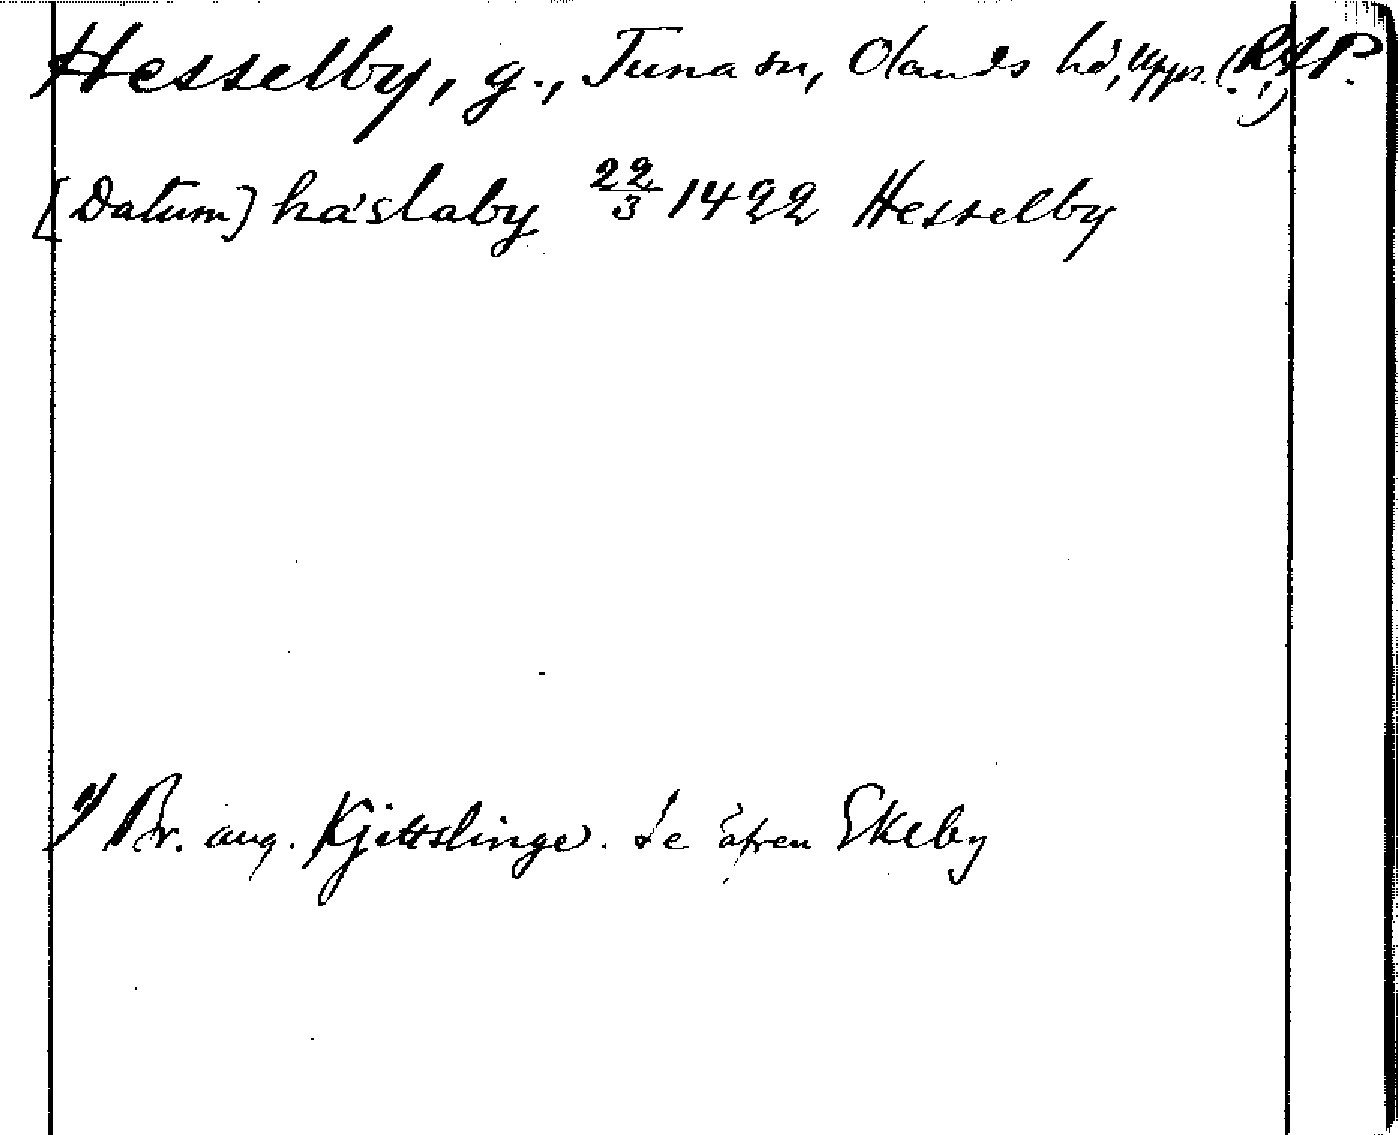 Hesselby, g., Tuna sn, Olands hd, Upps. (R.A.P.
[Datum] håslaby 22/3 1422 Hesselby
1) Br. ang. Kjettslinge. Se äfven Ekeby